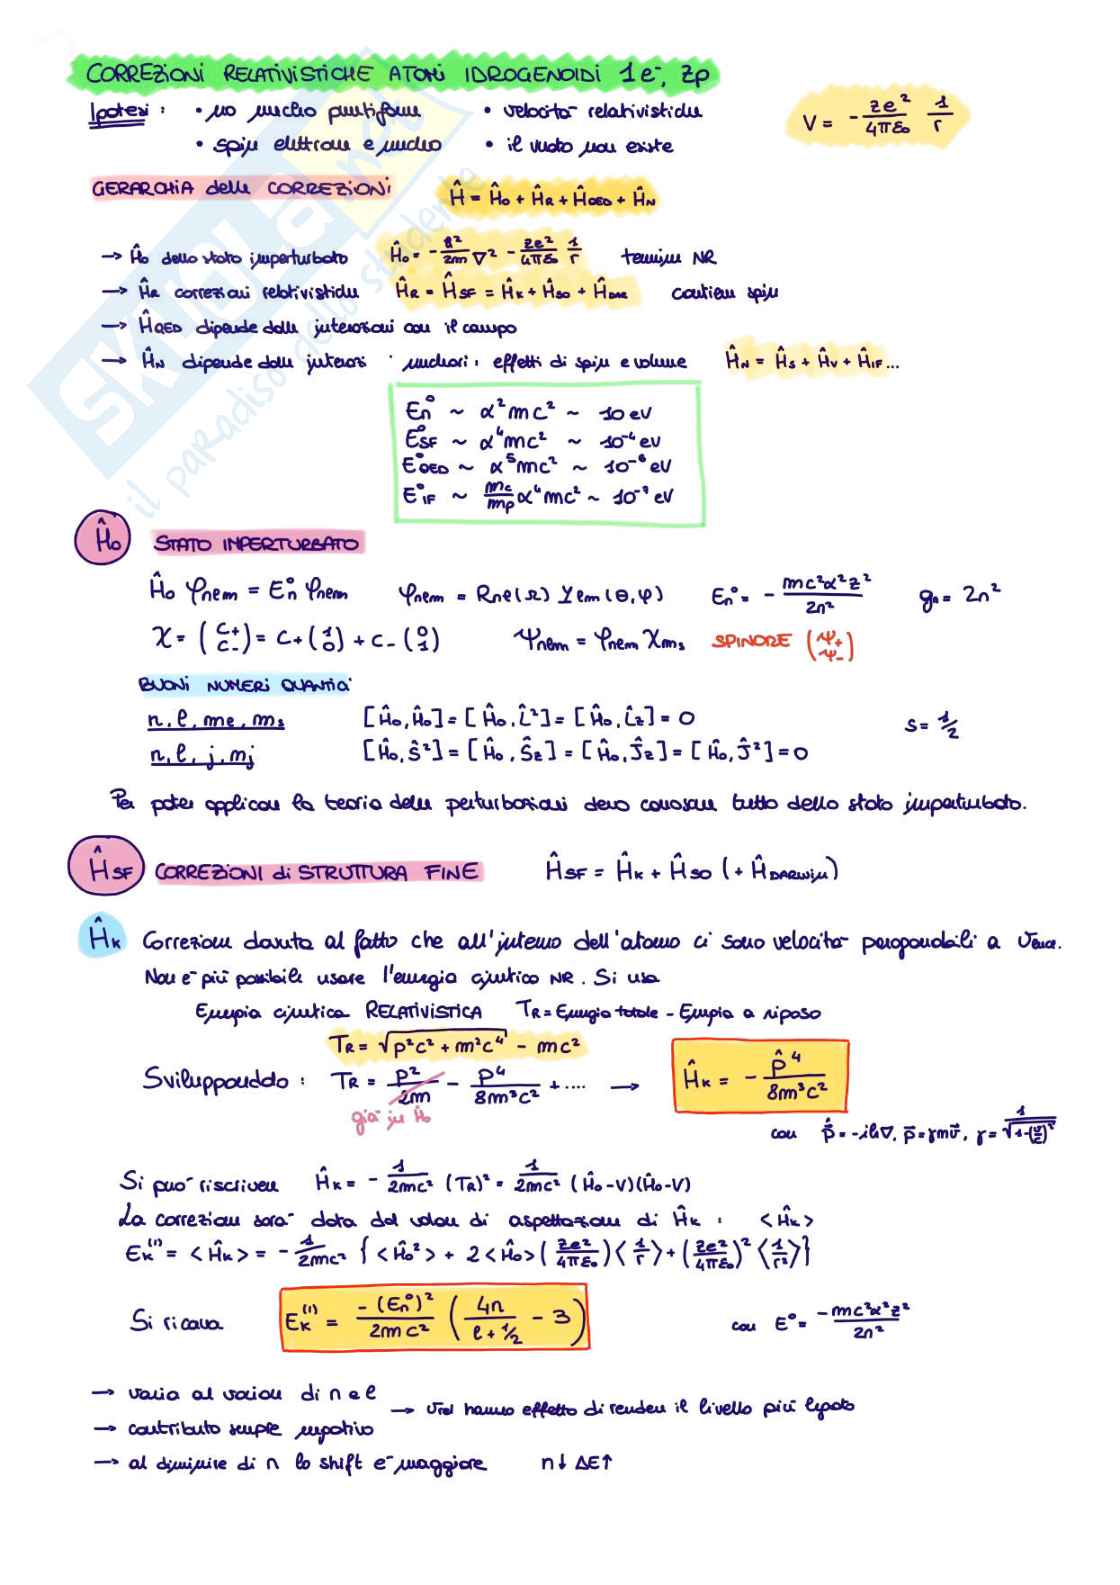 CORREZIONI RELATIVISTICHE ATOMI IDROGENOIDI 1e⁻, Zp
Ipotesi : • no nucleo puntiforme • velocità relativistiche V = - Ze²/4πε₀ 1/r
• spin elettrone e nucleo • il vuoto non esiste
GERARCHIA delle CORREZIONI Ĥ = Ĥ₀ + ĤR + ĤQED + ĤN
→ Ĥ₀ dello stato imperturbato Ĥ₀ = - ħ²/2m ∇² - Ze²/4πε₀ 1/r termine NR
→ ĤR correzioni relativistiche ĤR = ĤSF = ĤK + ĤSO + ĤDAR contiene spin
→ ĤQED dipende dalle interazioni con il campo
→ ĤN dipende dalle interazi nucleari : effetti di spin e volume ĤN = ĤS + ĤV + ĤIF ...
En° ~ α²mc² ~ 10 eV
E°SF ~ α⁴mc² ~ 10⁻⁴ eV
E°QED ~ α⁵mc² ~ 10⁻⁶ eV
E°IF ~ me/mp α⁴mc² ~ 10⁻⁷ eV
Ĥ₀ STATO INPERTURBATO
Ĥ₀ φnem = En° φnem φnem = Rne(r) Yem(θ,φ) En° = - mc²α²z²/2n² gn = 2n²
χ = (c+ c-) = c+ (1 0) + c- (0 1) Ψnem = φnem χms SPINORE (Ψ+ Ψ-)
BUONI NUMERI QUANTICI
n, l, me, ms [Ĥ₀,Ĥ₀] = [Ĥ₀,L̂²] = [Ĥ₀,L̂z] = 0 s = 1/2
n, l, j, mj [Ĥ₀,Ŝ²] = [Ĥ₀,Ŝz] = [Ĥ₀,Ĵz] = [Ĥ₀,Ĵ²] = 0
Per poter applicare la teoria delle perturbazioni devo conoscere tutto dello stato imperturbato.
ĤSF CORREZIONI di STRUTTURA FINE ĤSF = ĤK + ĤSO (+ ĤDARWIN)
ĤK Correzione dovuta al fatto che all'interno dell'atomo ci sono velocità paragonabili a vluce.
Non è più possibile usare l'energia cinetica NR. Si usa
Energia cinetica RELATIVISTICA TR = Energia totale - Energia a riposo
TR = √(p²c² + m²c⁴) - mc²
Sviluppandolo : TR = p²/2m - p⁴/8m³c² + .... → ĤK = - p̂⁴/8m³c²
già in Ĥ₀
con p̂ = -iħ∇, p̄ = γmv̄, γ = 1/√(1-(v/c)²)
Si può riscrivere ĤK = - 1/2mc² (TR)² = 1/2mc² (Ĥ₀-V)(Ĥ₀-V)
La correzione sarà data dal valore di aspettazione di ĤK : <ĤK>
EK⁽¹⁾ = <ĤK> = - 1/2mc² { <Ĥ₀²> + 2<Ĥ₀> (Ze²/4πε₀) <1/r> + (Ze²/4πε₀)² <1/r²> }
Si ricava EK⁽¹⁾ = -(En°)²/2mc² (4n/(l + 1/2) - 3) con E° = -mc²α²z²/2n²
→ varia al variare di n e l
→ vrel hanno effetto di rendere il livello più legato
→ contributo sempre negativo
→ al diminuire di n lo shift è maggiore n↓ ΔE↑
SKUOLA.net
il paradiso dello studente